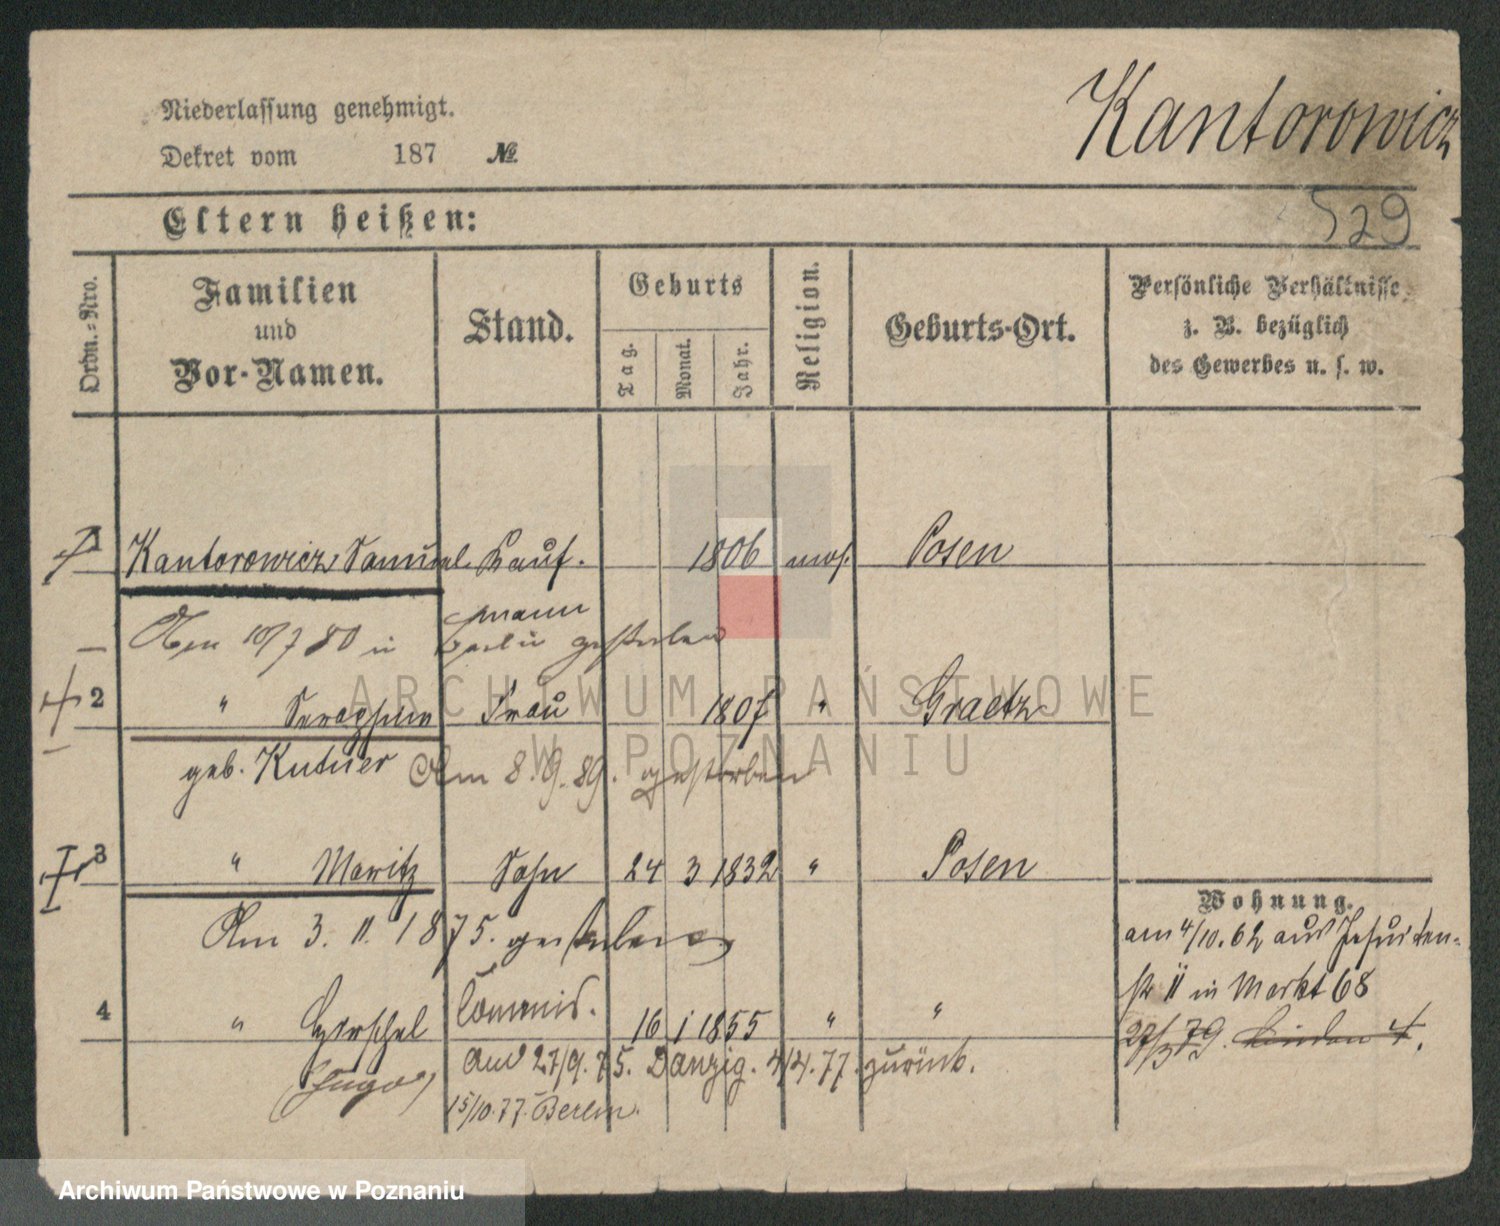 Niederlassung genehmigt.
Kantorowicz
Dekret vom 187 №
Eltern heißen:
529
Ordn.=Nro.
Familien
und
Vor-Namen.
Stand.
Geburts
Tag.
Monat.
Jahr.
Religion.
Geburts-Ort.
Persönliche Verhältnisse
z. B. bezüglich
des Gewerbes u. s. w.
1 Kantorowicz Samuel Kauf. 1806 mos. Posen
mann
Am 10/7 80 in Berlin gestorben
2 " Frau 180 " Graetz
geb. Kutner Am 8.9.89. gestorben
3 " Moritz Sohn 24 3 1832 " Posen
Am 3. 11. 1875. gestorben
Wohnung.
am 4/10. 62 aus Jesuiten-
str 11 in Markt 68
27/3 79. Linden 4.
4 " Hirschel Commis. 16 1 1855 " "
(Hugo) Aus 27/9. 75. Danzig. 4/4. 77. zurück.
15/10. 77. Berlin.
ARCHIWUM PAŃSTWOWE
W POZNANIU
Archiwum Państwowe w Poznaniu